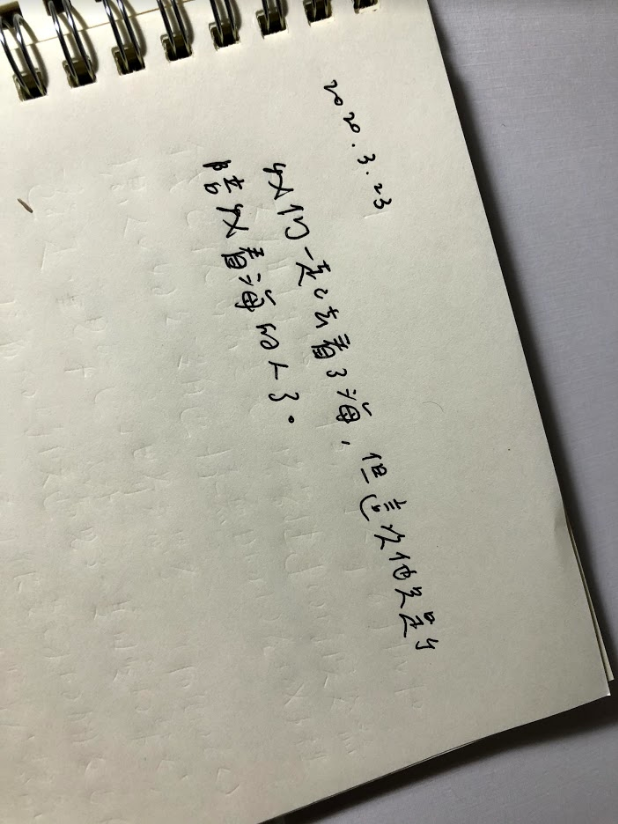 2020.3.23
我们一起去看了海，但這次他是
陪我看海的人了。